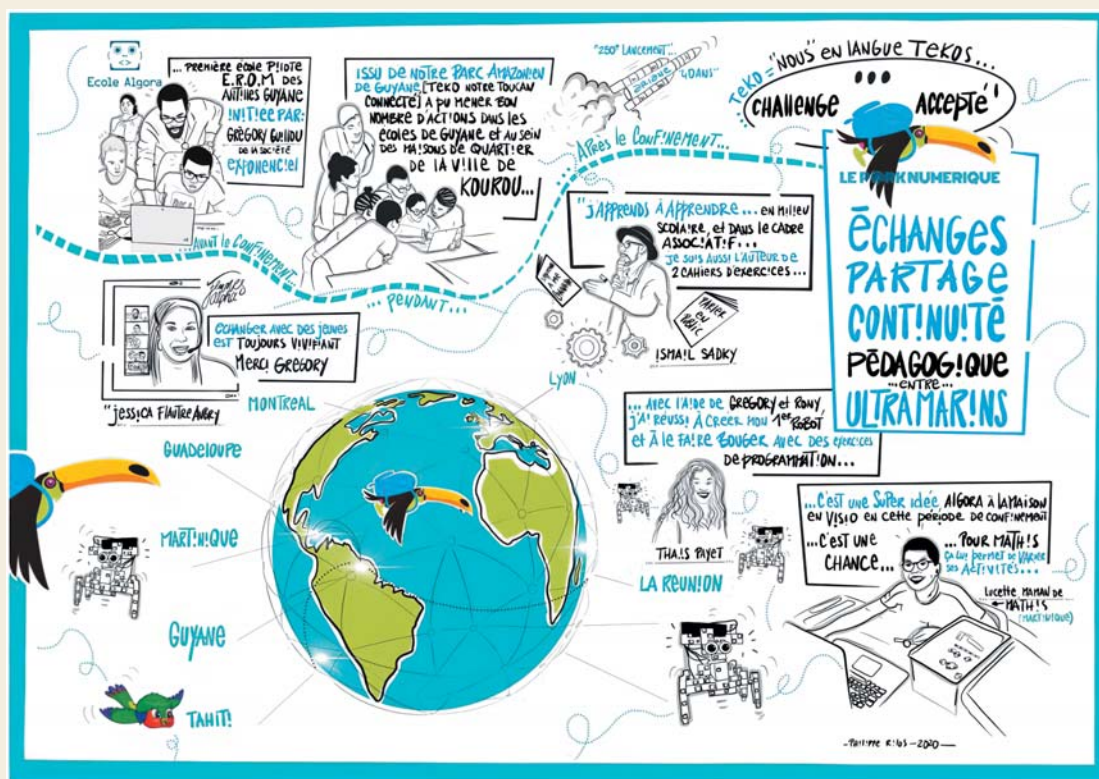 Ecole Algora
... PREMIÈRE ÉCOLE PILOTE
E.P.O.M DES
ANTILLES GUYANE
INITIEE PAR:
GRÉGORY
DE LA SOCIÉTÉ
EXPONENCIEL
ISSU DE NOTRE PARC AMAZONIEN
DE GUYANE, [TEKO NOTRE TOUCAN
CONNECTÉ] A PU MENER BON
NOMBRE D'ACTIONS DANS LES
ÉCOLES DE GUYANE ET AU SEIN
DES MAISONS DE QUARTIER
DE LA VILLE DE
KOUROU...
"250° LANCEMENT"...
"ARIANE
TEKO = "NOUS" EN LANGUE TEKOS...
...
CHALLENGE ACCEPTÉ"
LE NUMERIQUE
ÉCHANGES
PARTAGE
CONTINUITÉ
PÉDAGOGIQUE
...ENTRE...
ULTRAMARINS
...AVANT LE CONFINEMENT...
... PENDANT...
APRÈS LE CONFINEMENT...
"J'APPRENDS À APPRENDRE... EN MILIEU
SCOLAIRE, ET DANS LE CADRE
ASSOCIATIF...
JE SUIS AUSSI L'AUTEUR DE
2 CAHIERS D'EXERCICES...
PARLER
EN
PUBLIC
ISMAIL SADKY
ECHANGER AVEC DES JEUNES
EST TOUJOURS VIVIFIANT
MERCI GREGORY
"JESSICA FLAUTRE AUBRY
MONTREAL
LYON
GUADELOUPE
MARTINIQUE
GUYANE
TAHITI
... AVEC L'AIDE DE GREGORY ET RONY,
J'AI RÉUSSI À CRÉER MON 1ER ROBOT
ET À LE FAIRE BOUGER AVEC DES EXERCICES
DE PROGRAMMATION...
THAIS PAYET
LA REUNION
...C'EST UNE SUPER IDÉE, ALGORA À LA MAISON
EN VISIO EN CETTE PÉRIODE DE CONFINEMENT
...C'EST UNE
CHANCE...
... POUR MATHIS
ÇA LUI PERMET DE VARIER
SES ACTIVITÉS...
LUCETTE MAMAN DE
MATHIS
(MARTINIQUE)
- PHILIPPE RIUS - 2020 -